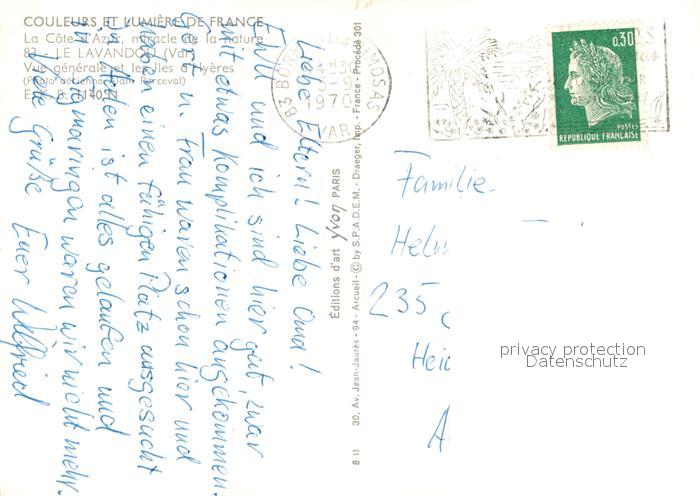 COULEURS ET LUMIÈRE DE FRANCE
La Côte d'Azur, miracle de la nature
83 - LE LAVANDOU (Var)
Vue générale et les Iles d'Hyères
(Photo aérienne Alain Perceval)
Liebe Eltern! Liebe Oma!
und ich sind hier gut, zwar
mit etwas Komplikationen angekommen.
u. Frau waren schon hier und
haben einen ruhigen Platz ausgesucht
In ist alles gelaufen und
in waren wir nicht mehr.
Viele Grüße Euer Wilfried
83 BORMES LES MIMOSAS
1970
VAR
0,30
POSTES
REPUBLIQUE FRANÇAISE
Éditions d'art yvon PARIS
30, Av. Jean-Jaurès - 94 - Arcueil - © by S.P.A.D.E.M. - Draeger, Imp. - France - Procédé 301
8 11
Familie
Hel
235
Hei
A
privacy protection
Datenschutz